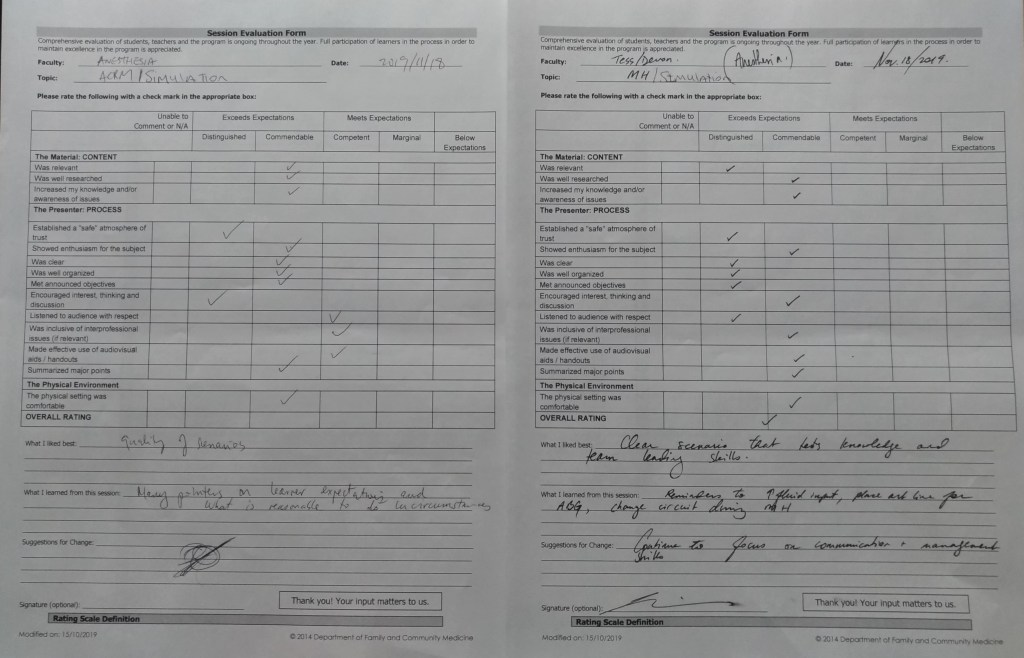 Session Evaluation Form
Comprehensive evaluation of students, teachers and the program is ongoing throughout the year. Full participation of learners in the process in order to
maintain excellence in the program is appreciated.
Faculty: ANESTHESIA Date: 2019/11/18
Topic: ACRM/SIMULATION
Please rate the following with a check mark in the appropriate box:
Unable to Exceeds Expectations Meets Expectations
Comment or N/A
Distinguished Commendable Competent Marginal Below
Expectations
The Material: CONTENT
Was relevant
Was well researched
Increased my knowledge and/or
awareness of issues
The Presenter: PROCESS
Established a "safe" atmosphere of
trust
Showed enthusiasm for the subject
Was clear
Was well organized
Met announced objectives
Encouraged interest, thinking and
discussion
Listened to audience with respect
Was inclusive of interprofessional
issues (if relevant)
Made effective use of audiovisual
aids / handouts
Summarized major points
The Physical Environment
The physical setting was
comfortable
OVERALL RATING
What I liked best: Quality of scenarios
What I learned from this session: Many pointers on learner expectations and
what is reasonable to do in circumstances
Suggestions for Change:
Signature (optional):
Thank you! Your input matters to us.
Rating Scale Definition
Modified on: 15/10/2019 © 2014 Department of Family and Community Medicine
Session Evaluation Form
Comprehensive evaluation of students, teachers and the program is ongoing throughout the year. Full participation of learners in the process in order to
maintain excellence in the program is appreciated.
Faculty: Tess/Devon. (Anesthesia.) Date: Nov. 18/2019.
Topic: MH/Simulation
Please rate the following with a check mark in the appropriate box:
Unable to Exceeds Expectations Meets Expectations
Comment or N/A
Distinguished Commendable Competent Marginal Below
Expectations
The Material: CONTENT
Was relevant
Was well researched
Increased my knowledge and/or
awareness of issues
The Presenter: PROCESS
Established a "safe" atmosphere of
trust
Showed enthusiasm for the subject
Was clear
Was well organized
Met announced objectives
Encouraged interest, thinking and
discussion
Listened to audience with respect
Was inclusive of interprofessional
issues (if relevant)
Made effective use of audiovisual
aids / handouts
Summarized major points
The Physical Environment
The physical setting was
comfortable
OVERALL RATING
What I liked best: Clear scenario that tests knowledge and
team leading skills.
What I learned from this session: Reminders to ↑ fluid input, place art line for
ABG, change circuit during MH
Suggestions for Change: Continue to focus on communication + management
skills
Signature (optional):
Thank you! Your input matters to us.
Rating Scale Definition
Modified on: 15/10/2019 © 2014 Department of Family and Community Medicine